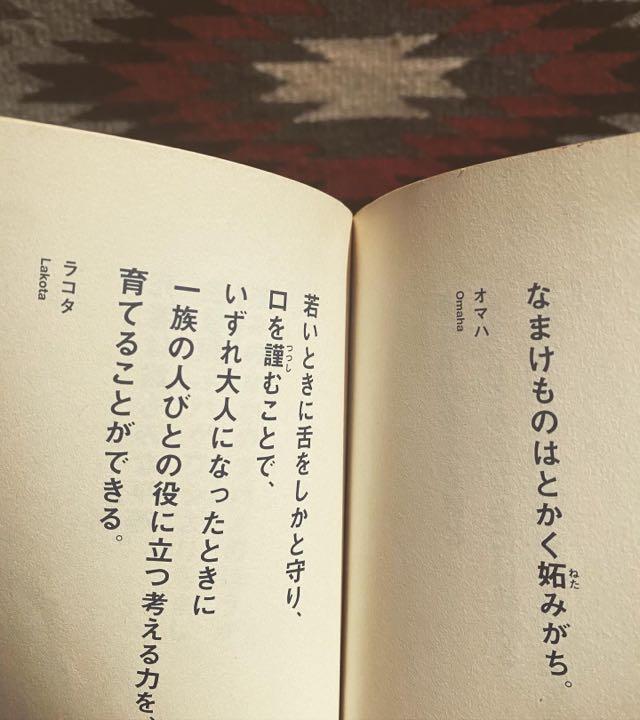 なまけものはとかく妬みがち。
ねた
オマハ
Omaha
若いときに舌をしかと守り、
口を謹むことで、
つつし
いずれ大人になったときに
一族の人びとの役に立つ考える力を、
育てることができる。
ラコタ
Lakota